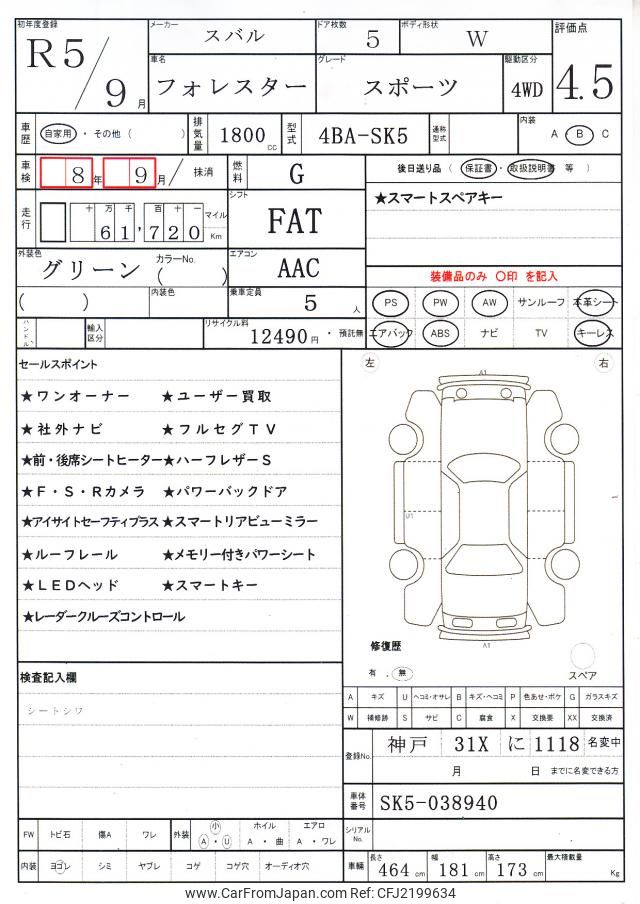 初年度登録 メーカー スバル ドア枚数 5 ボディ形状 W 評価点
R5/9月 車名 フォレスター グレード スポーツ 駆動区分 4WD 4.5
車歴 自家用・その他( ) 排気量 1800cc 型式 4BA-SK5 通称型式 内装 A B C
車検 8年9月/抹消 燃料 G 後日送り品(保証書・取扱説明書 等)
走行 十万千百十一 61,720 マイル Km シフト FAT ★スマートスペアキー
外装色 グリーン カラーNo.( ) エアコン AAC 装備品のみ ○印 を記入
( ) 内装色 乗車定員 5人 PS PW AW サンルーフ 本革シート
ハンドル 輸入区分 リサイクル料 12490円・預託無 エアバック ABS ナビ TV キーレス
セールスポイント 左 右
★ワンオーナー ★ユーザー買取
★社外ナビ ★フルセグTV
★前・後席シートヒーター★ハーフレザーS
★F・S・Rカメラ ★パワーバックドア
★アイサイトセーフティプラス★スマートリアビューミラー
★ルーフレール ★メモリー付きパワーシート
★LEDヘッド ★スマートキー
★レーダークルーズコントロール
A1
U1
A1
修復歴
有 . 無 スペア
検査記入欄
シートシワ
A キズ U ヘコミ・オサレ B キズ・ヘコミ P 色あせ・ボケ G ガラスキズ
W 補修跡 S サビ C 腐食 X 交換要 XX 交換済
登録No. 神戸 31X に 1118 名変中
月 日 までに名変できる方
車体番号 SK5-038940
シリアルNo.
FW トビ石 傷A ワレ 外装 小 A・U ホイル A・曲 エアロ A・ワレ
内装 ヨゴレ シミ ヤブレ コゲ コゲ穴 オーディオ穴 車輛 長さ 464cm 幅 181cm 高さ 173cm 最大積載量 Kg
www.CarFromJapan.com Ref: CFJ2199634